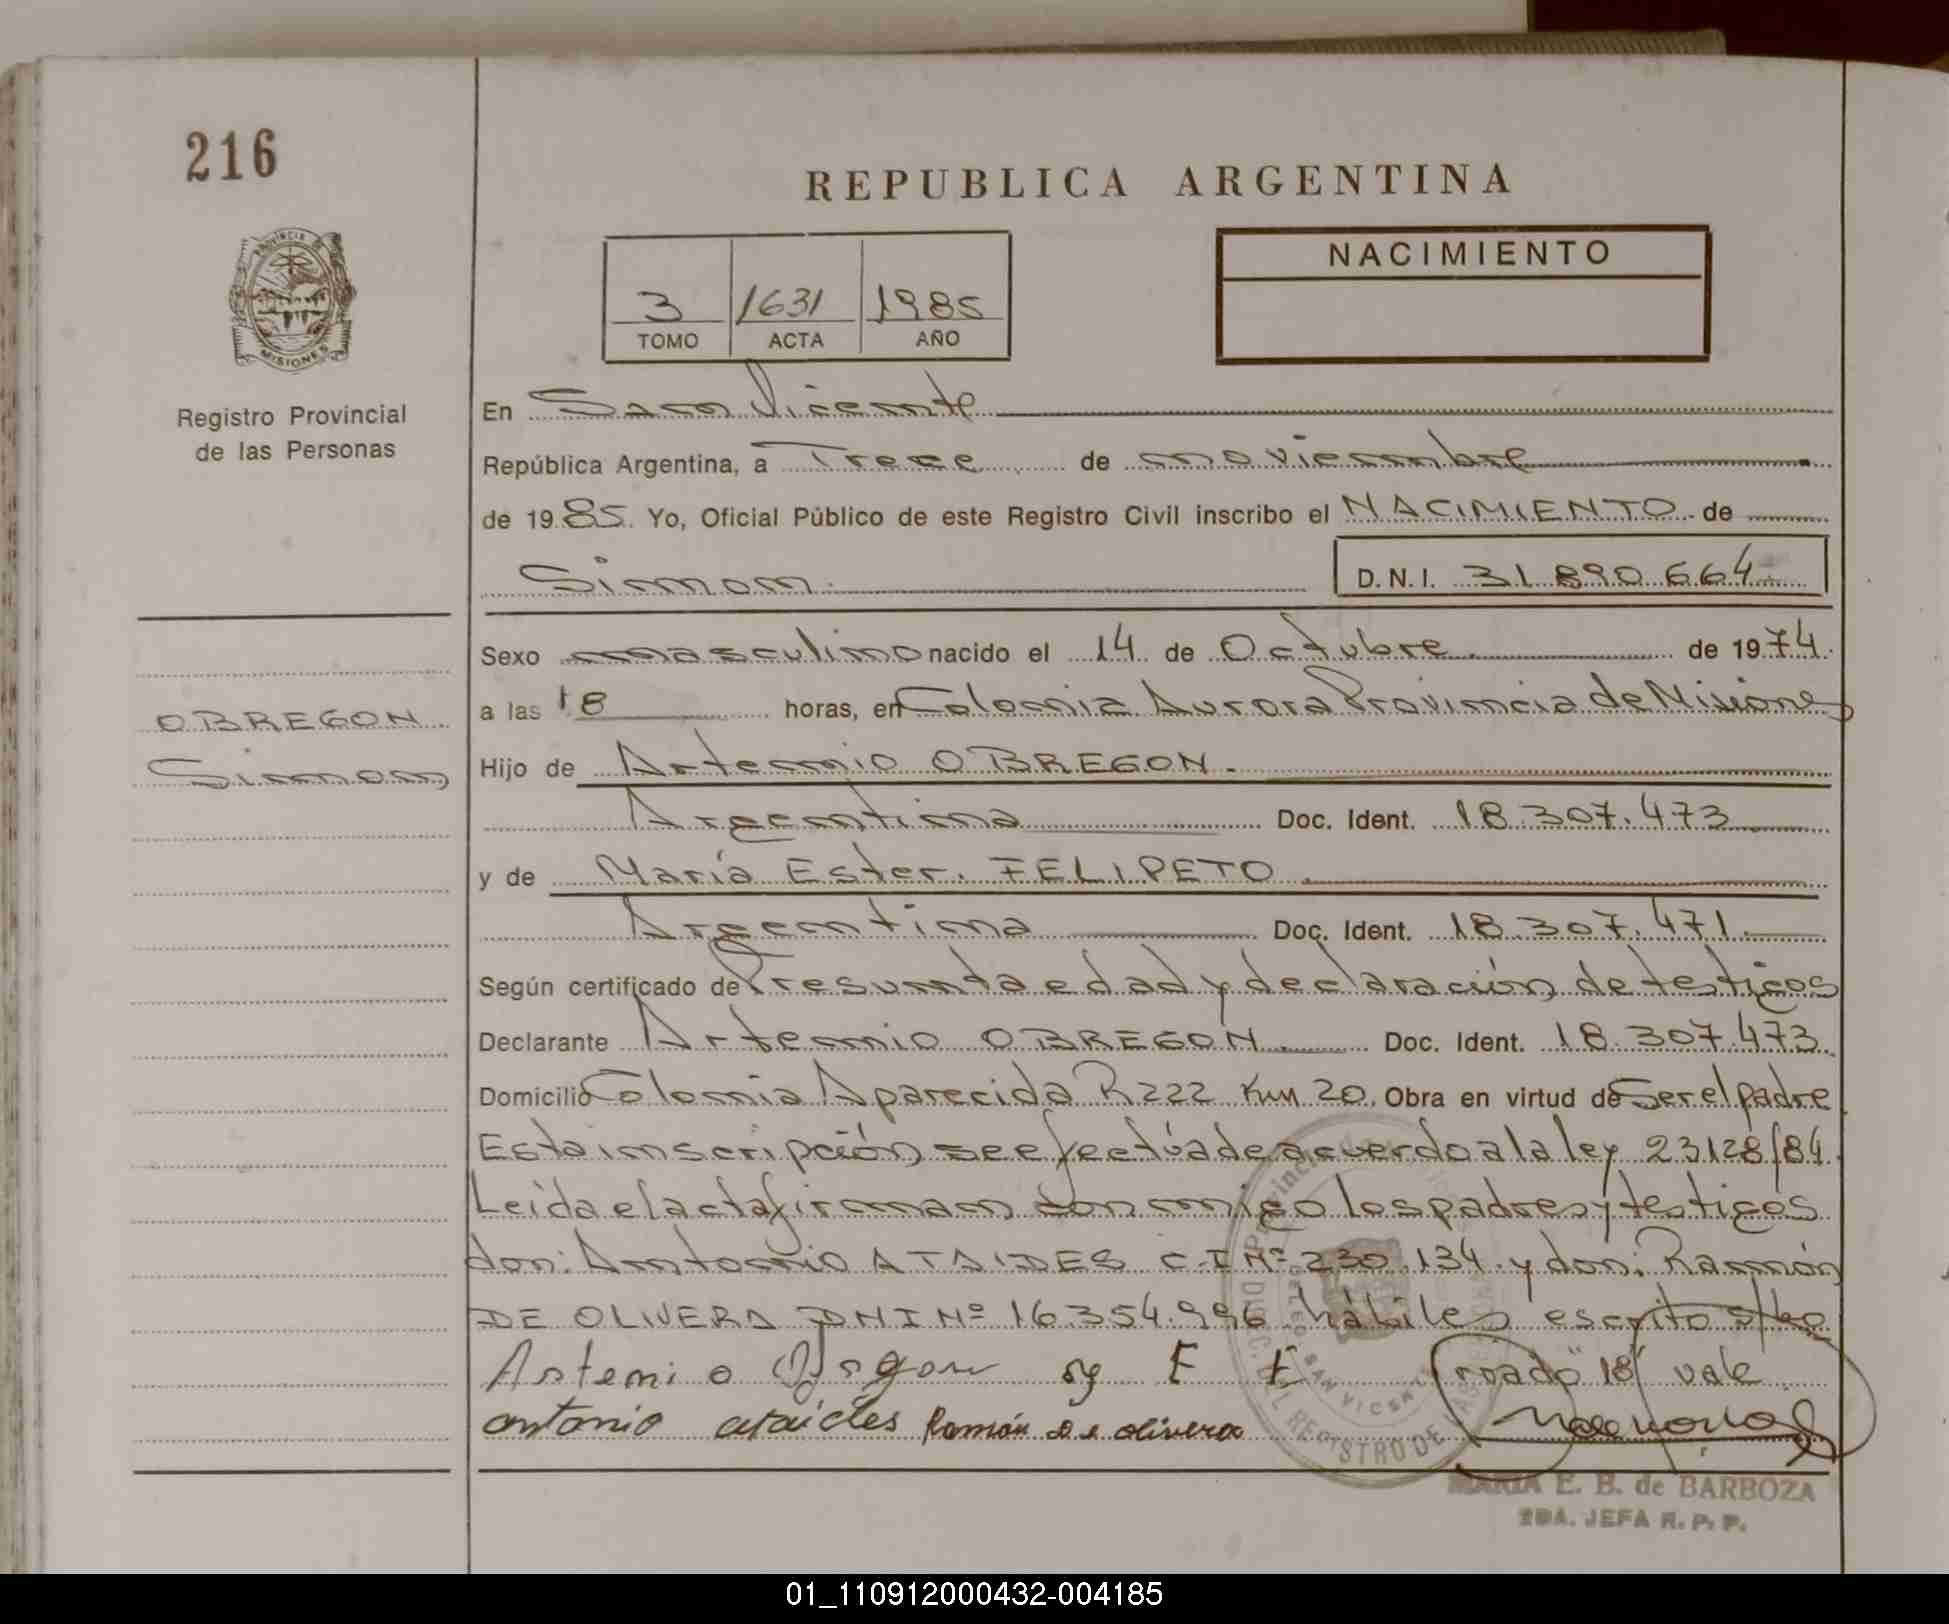 216
REPUBLICA ARGENTINA
PROVINCIA DE
MISIONES
Registro Provincial
de las Personas
3 1631 1985
TOMO ACTA AÑO
NACIMIENTO
En San Vicente
República Argentina, a Trece de noviembre
de 1985. Yo, Oficial Público de este Registro Civil inscribo el NACIMIENTO de
Simon. D.N.I. 31.890.664
Sexo masculino nacido el 14 de Octubre de 1974.
OBREGON
Simon
a las 18 horas, en Colonia Aurora Provincia de Misiones
Hijo de Artemio OBREGON.
Argentina Doc. Ident. 18.307.473
y de María Ester. FELIPETO.
Argentina Doc. Ident. 18.307.471.
Según certificado de Presunta edad y declaración de testigos
Declarante Artemio OBREGON. Doc. Ident. 18.307.473.
Domicilio Colonia Aparecida R222 Km 20. Obra en virtud de Ser el padre
Esta inscripción se efectúa de acuerdo a la ley 23128/84.
Leida el acta firman conmigo los padres y testigos
don: Antonio ATAIDES C.I Nº 230.134 y don: Ramón
DE OLIVERA DNI Nº 16.354.996 hábiles escrito s/bo
Artemio Obregon F E rrado "18" vale
antonio ataides Ramón De olivera
MARIA E. B. de BARBOZA
2DA. JEFA R. P. P.
01_110912000432-004185